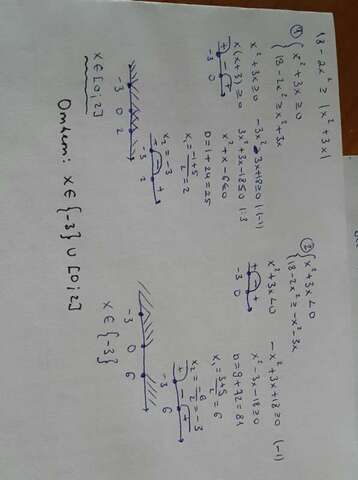 18 - 2x² ≥ |x² + 3x|
① { x² + 3x ≥ 0
18 - 2x² ≥ x² + 3x
x² + 3x ≥ 0
x(x+3) ≥ 0
+ - +
-3 0
-3x² - 3x + 18 ≥ 0 |(-1)
3x² + 3x - 18 ≤ 0 |:3
x² + x - 6 ≤ 0
D = 1 + 24 = 25
x₁ = (-1+5)/2 = 2
x₂ = -3
+ - +
-3 2
-3 0 2
x ∈ [0; 2]
② { x² + 3x < 0
18 - 2x² ≥ -x² - 3x
x² + 3x < 0
+ - +
-3 0
-x² + 3x + 18 ≥ 0 (-1)
x² - 3x - 18 ≥ 0
D = 9 + 72 = 81
x₁ = (3+9)/2 = 6
x₂ = -6/2 = -3
+ - +
-3 6
-3 0 6
x ∈ {-3}
Ответ: x ∈ {-3} ∪ [0; 2]